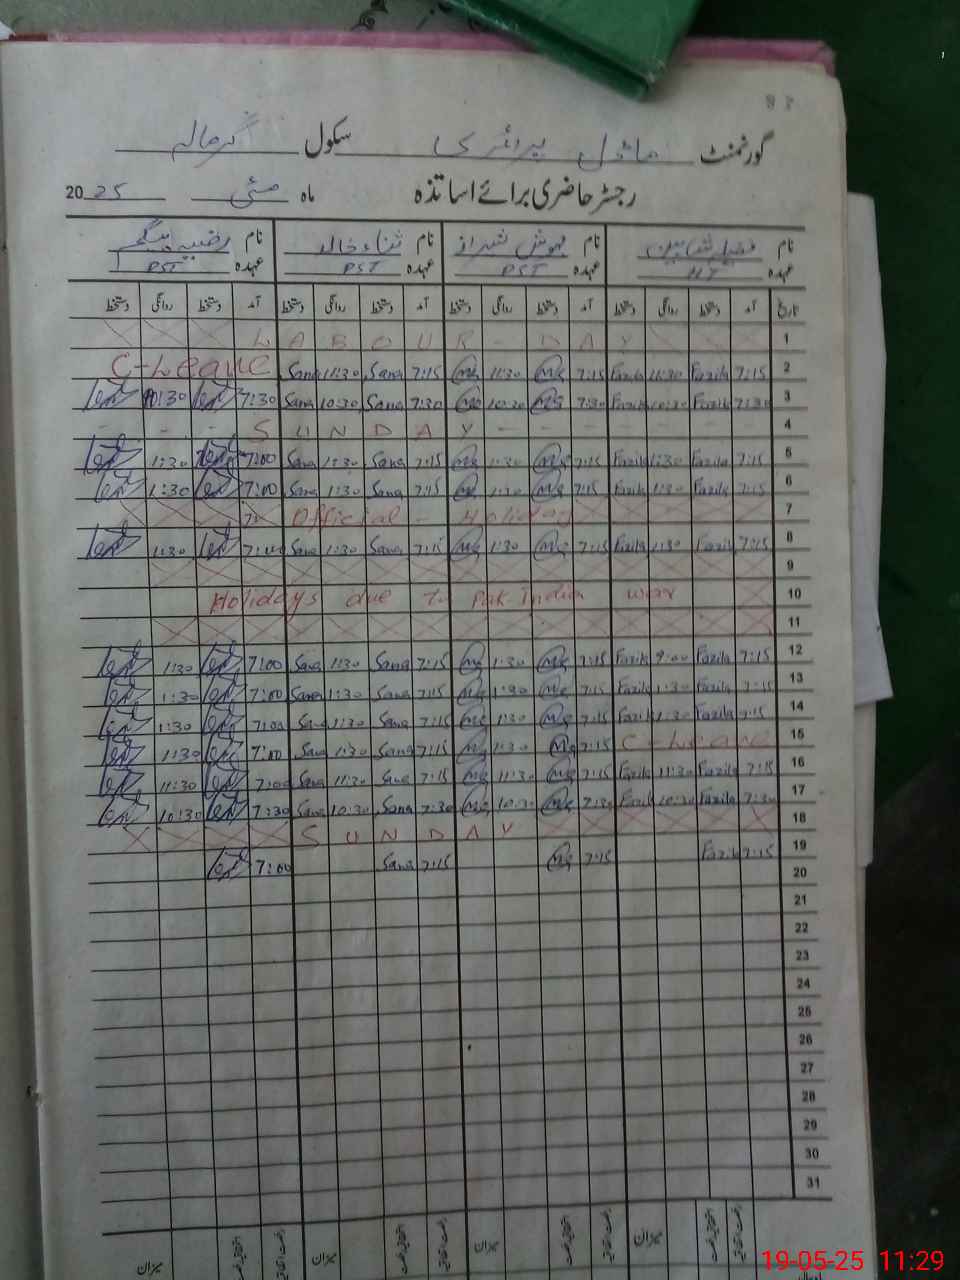 83
گورنمنٹ ماڈل پرائمری سکول گرمالہ
رجسٹر حاضری برائے اساتذہ ماہ مئی 2025
نام فضیلہ شاہین نام مہوش شیراز نام ثناء خالد نام رضیہ بیگم
عہدہ HT عہدہ PST عہدہ PST عہدہ PST
تاریخ آمد دستخط روانگی دستخط آمد دستخط روانگی دستخط آمد دستخط روانگی دستخط آمد دستخط روانگی دستخط
LABOUR - DAY 1
C-Leave Sana 11:30 Sana 7:15 11:30 7:15 Fazila 11:30 Fazila 7:15 2
10:30 7:30 Sana 10:30 Sana 7:30 10:30 7:30 Fazila 10:30 Fazila 7:30 3
- - - SUNDAY - - - - 4
1:30 7:00 Sana 1:30 Sana 7:15 1:30 7:15 Fazila 1:30 Fazila 7:15 5
1:30 7:00 Sana 1:30 Sana 7:15 1:30 7:15 Fazila 1:30 Fazila 7:15 6
Official - Holiday 7
1:30 7:00 Sana 1:30 Sana 7:15 1:30 7:15 Fazila 1:30 Fazila 7:15 8
9
Holidays due to Pak-India war 10
11
1:30 7:00 Sana 1:30 Sana 7:15 1:30 7:15 Fazila 9:00 Fazila 7:15 12
1:30 7:00 Sana 1:30 Sana 7:15 1:30 7:15 Fazila 1:30 Fazila 7:15 13
1:30 7:00 Sana 1:30 Sana 7:15 1:30 7:15 Fazila 1:30 Fazila 7:15 14
1:30 7:00 Sana 1:30 Sana 7:15 1:30 7:15 C-Leave 15
11:30 7:00 Sana 11:30 Sana 7:15 11:30 7:15 Fazila 11:30 Fazila 7:15 16
10:30 7:30 Sana 10:30 Sana 7:30 10:30 7:30 Fazila 10:30 Fazila 7:30 17
SUNDAY 18
7:00 Sana 7:15 7:15 Fazila 7:15 19
20
21
22
23
24
25
26
27
28
29
30
31
میزان میزان میزان میزان
19-05-25 11:29